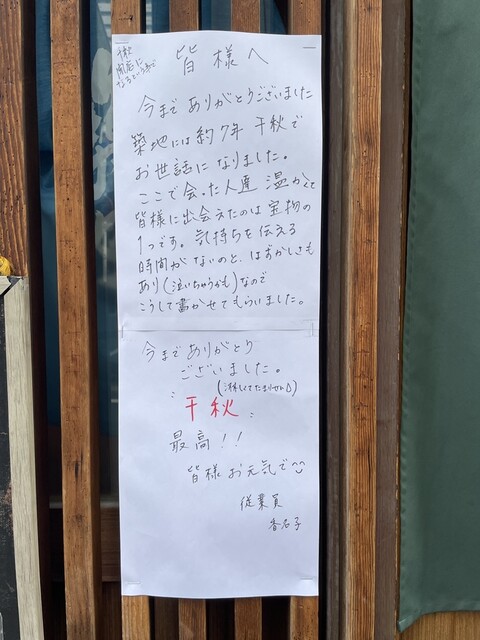 千秋
閉店に
なるという事で
皆様へ
今までありがとうございました
築地には約7年 千秋で
お世話になりました。
ここで会った人達 温かくて
皆様に出会えたのは宝物の
1つです。気持ちを伝える
時間がないのと、はずかしさも
あり(泣いちゃうかも)なので
こうして書かせてもらいました。
今までありがとう
ございました。
(淋しくてたまりせん)
千秋
最高!!
皆様お元気で
従業員